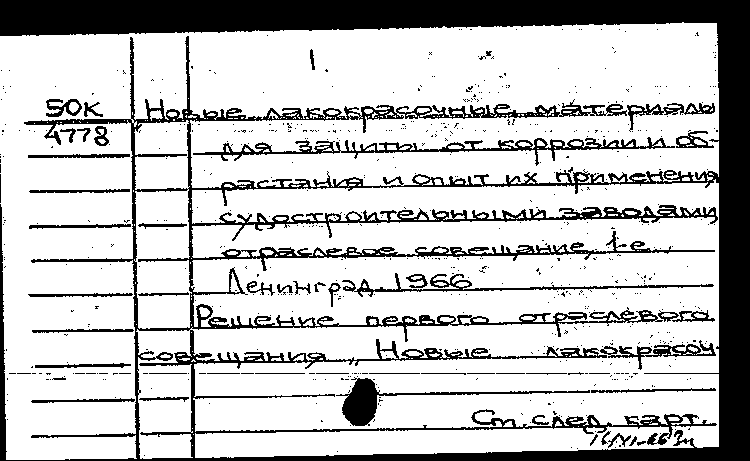 1
50К Новые лакокрасочные материалы
4778 для защиты от коррозии и об-
растания и опыт их применения
судостроительными заводами,
отраслевое совещание, 1-е.
Ленинград. 1966
Решение первого отраслевого
совещания „Новые лакокрасоч-
См. след. карт.